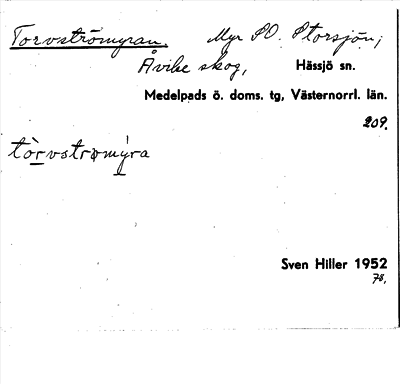 Torvströmyran. Myr SO. Storsjön;
Åvike skog, Hässjö sn.
Medelpads ö. doms. tg, Västernorrl. län.
209.
tòrvstrømýra
Sven Hiller 1952
78.